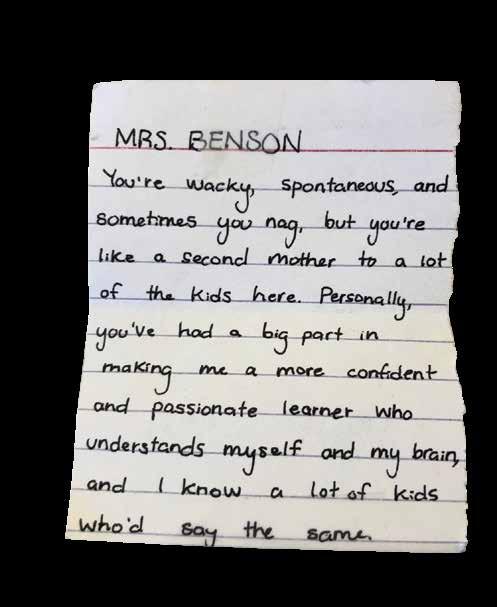 MRS. BENSON
You're wacky, spontaneous, and
sometimes you nag, but you're
like a second mother to a lot
of the kids here. Personally,
you've had a big part in
making me a more confident
and passionate learner who
understands myself and my brain,
and I know a lot of kids
who'd say the same.